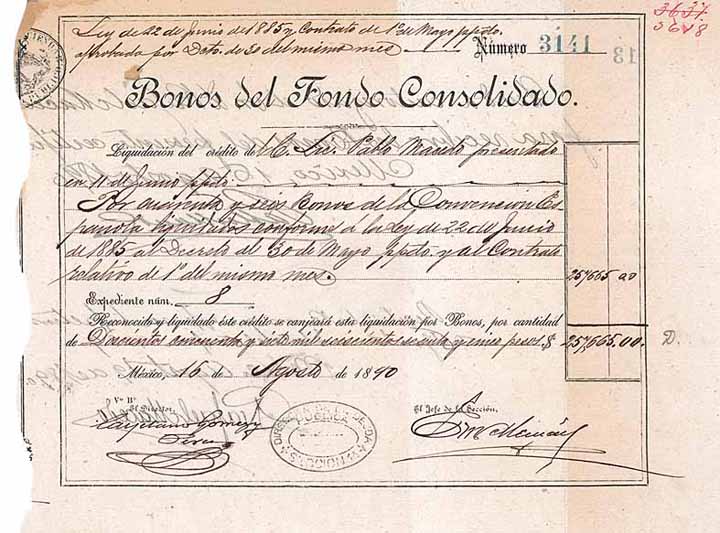 Ley de 22 de Junio de 1885 y Contrato de 1º de Mayo ppdo.
aprobado por Dcto. de 30 del mismo mes
Número 3141
3648
Bonos del Fondo Consolidado.
Liquidación del crédito del C. Lic. Pablo Macedo presentado
en 11 de Junio ppdo.
Por cuarenta y seis Bonos de la Convención Es
pañola liquidados conforme á la Ley de 22 de Junio
de 1885 al Decreto del 30 de Mayo ppdo. y al Contrato
relativo de 1º del mismo mes.
257,665 00
Expediente núm. 8
Reconocido y liquidado éste crédito se canjeará esta liquidación por Bonos, por cantidad
de Doscientos cincuenta y siete mil seiscientos sesenta y cinco pesos. $ 257,665.00. D.
México, 16 de Agosto de 1890
Vº Bº
El Director,
Cayetano Gomez y
Perez
El Jefe de la Sección.
DIRECCION DE LA DEUDA
PUBLICA